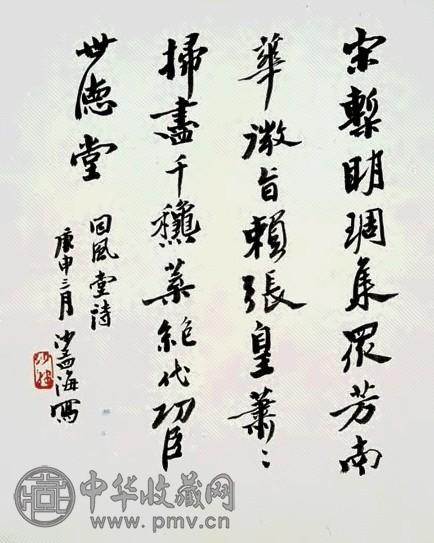 宋槧明琱集眾芳南
華微旨賴張皇蕭〻
掃盡千穐葉絕代功臣
世德堂
回風堂詩
庚申三月沙孟海寫
中华收藏网
www.pmv.cn